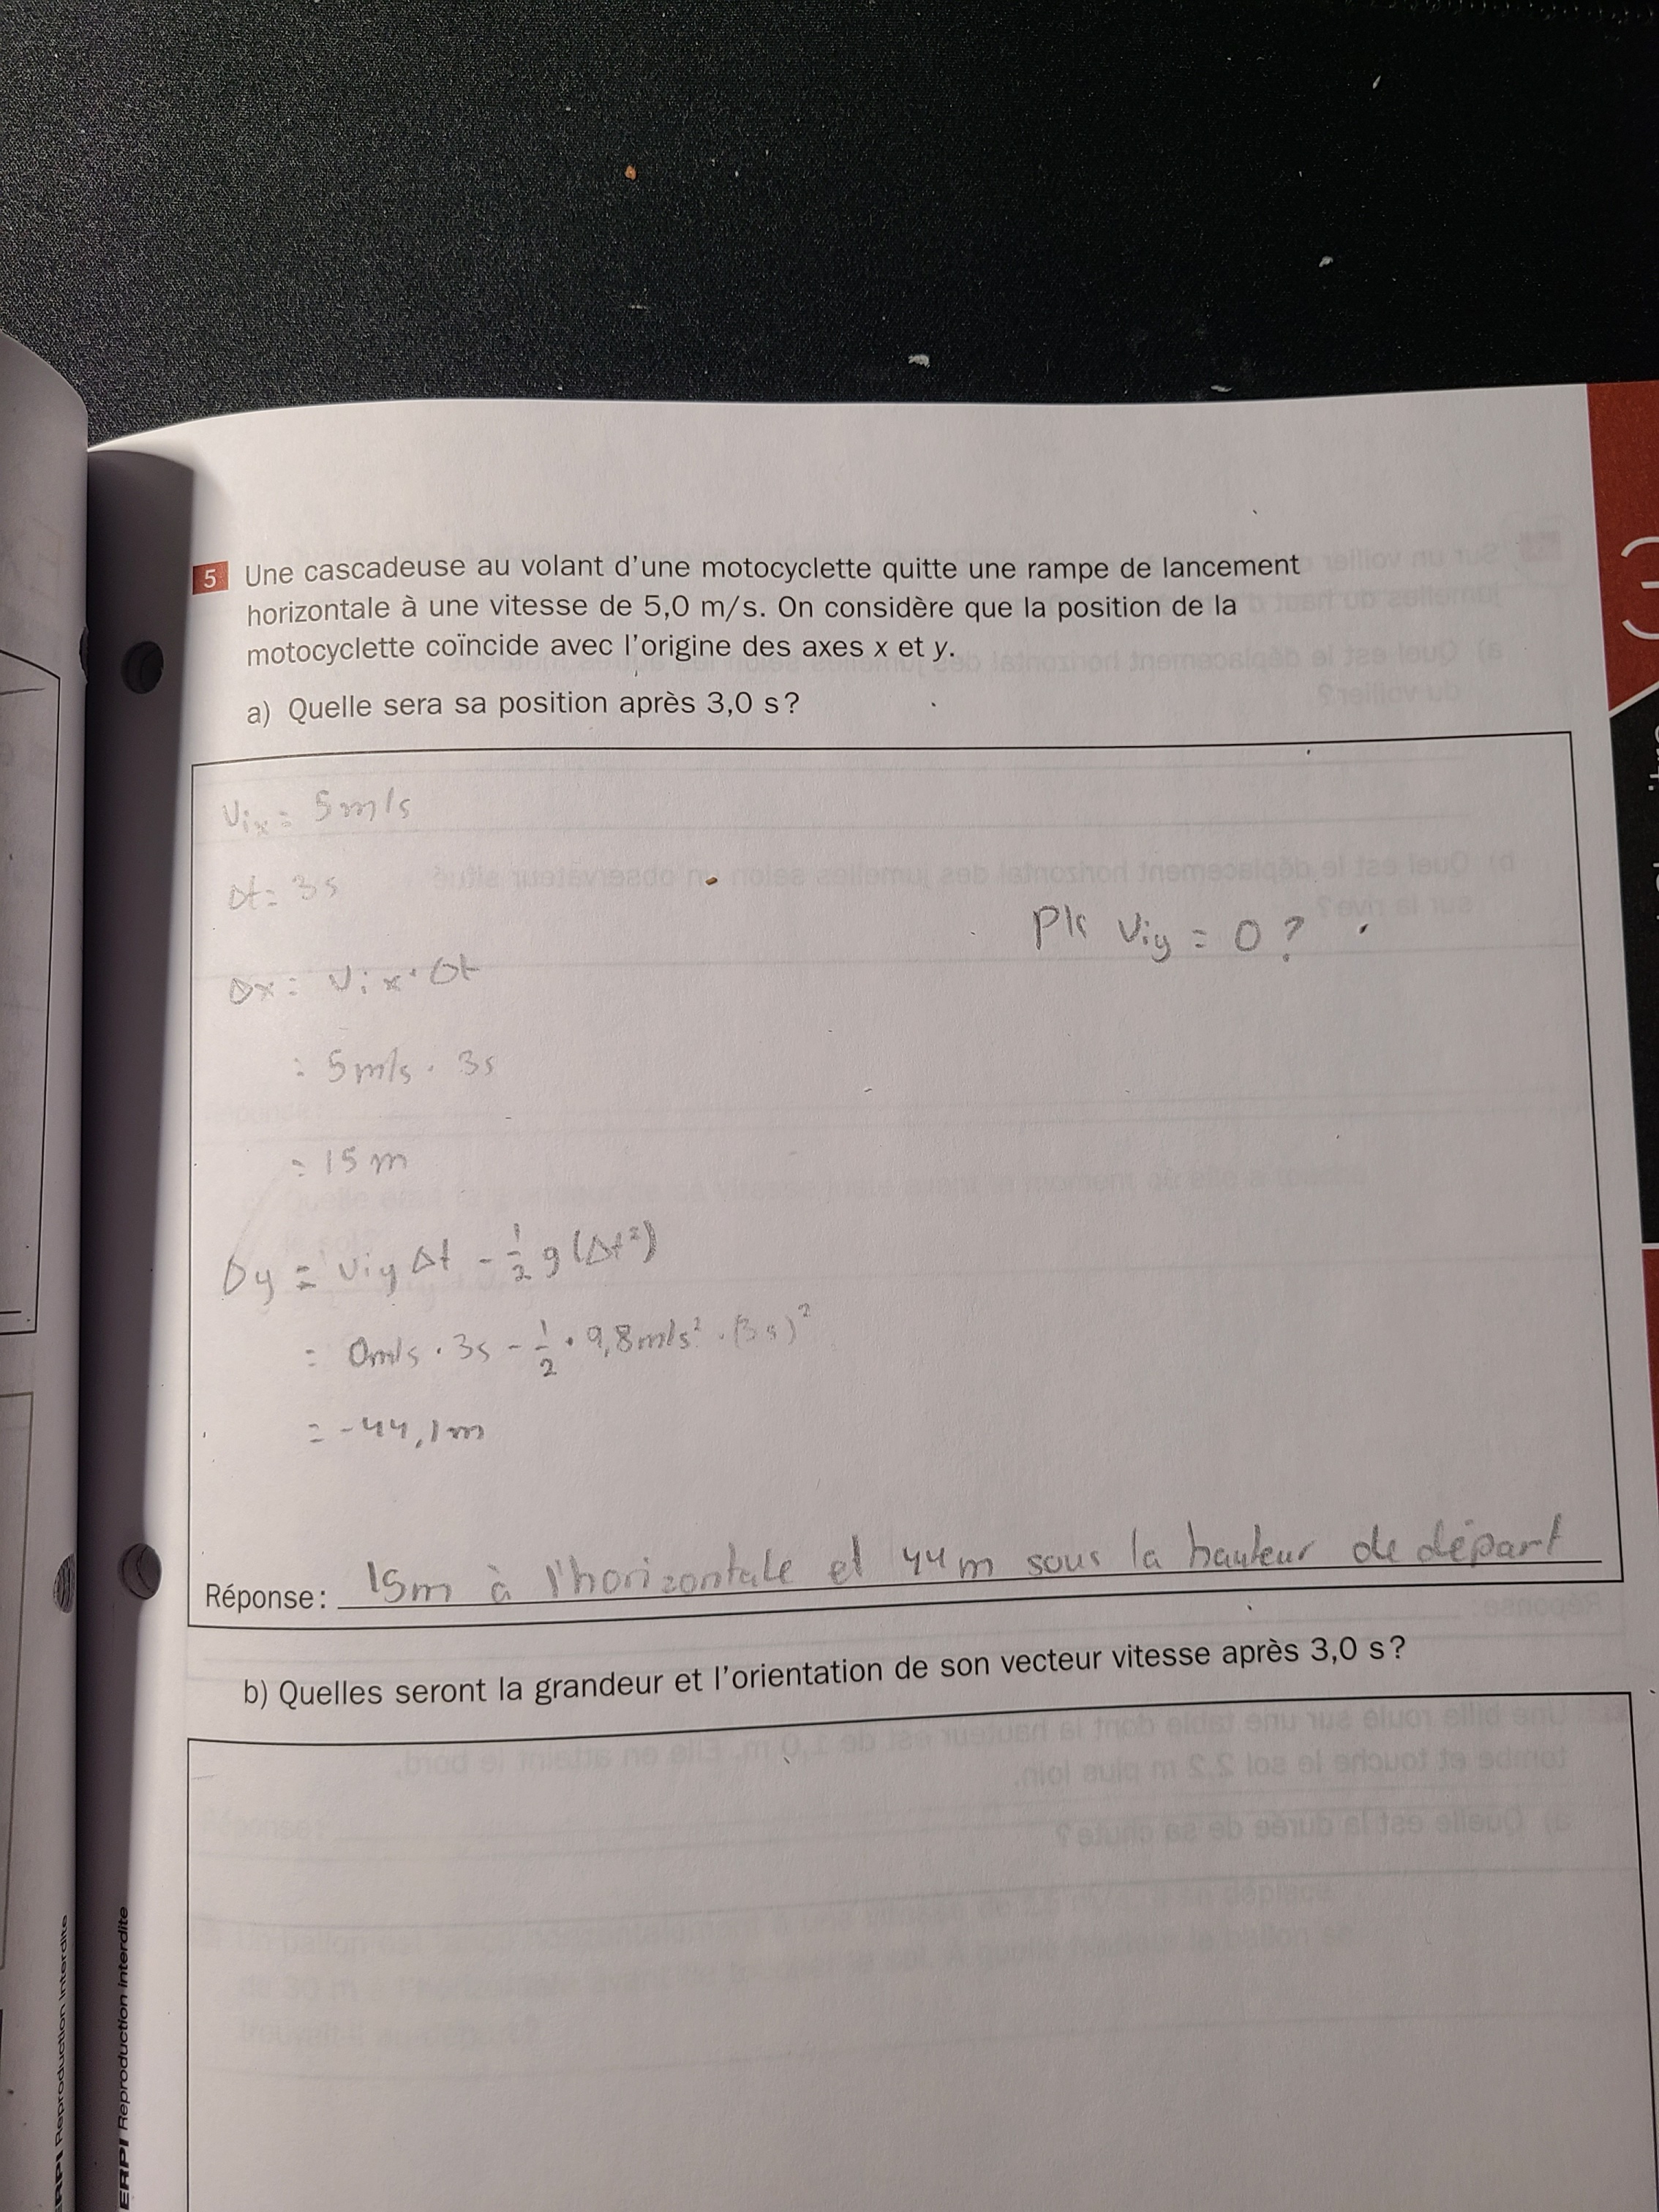 5 Une cascadeuse au volant d'une motocyclette quitte une rampe de lancement
horizontale à une vitesse de 5,0 m/s. On considère que la position de la
motocyclette coïncide avec l'origine des axes x et y.
a) Quelle sera sa position après 3,0 s?
Vix = 5m/s
Δt = 3s
Pk Viy = 0 ?
Δx = Vix · Δt
= 5m/s · 3s
= 15 m
Δy = Viy Δt - 1/2 g (Δt²)
= 0m/s · 3s - 1/2 · 9,8m/s² · (3s)²
= -44,1m
Réponse : 15m à l'horizontale et 44m sous la hauteur de départ
b) Quelles seront la grandeur et l'orientation de son vecteur vitesse après 3,0 s?
ERPI Reproduction interdite
ERPI Reproduction interdite